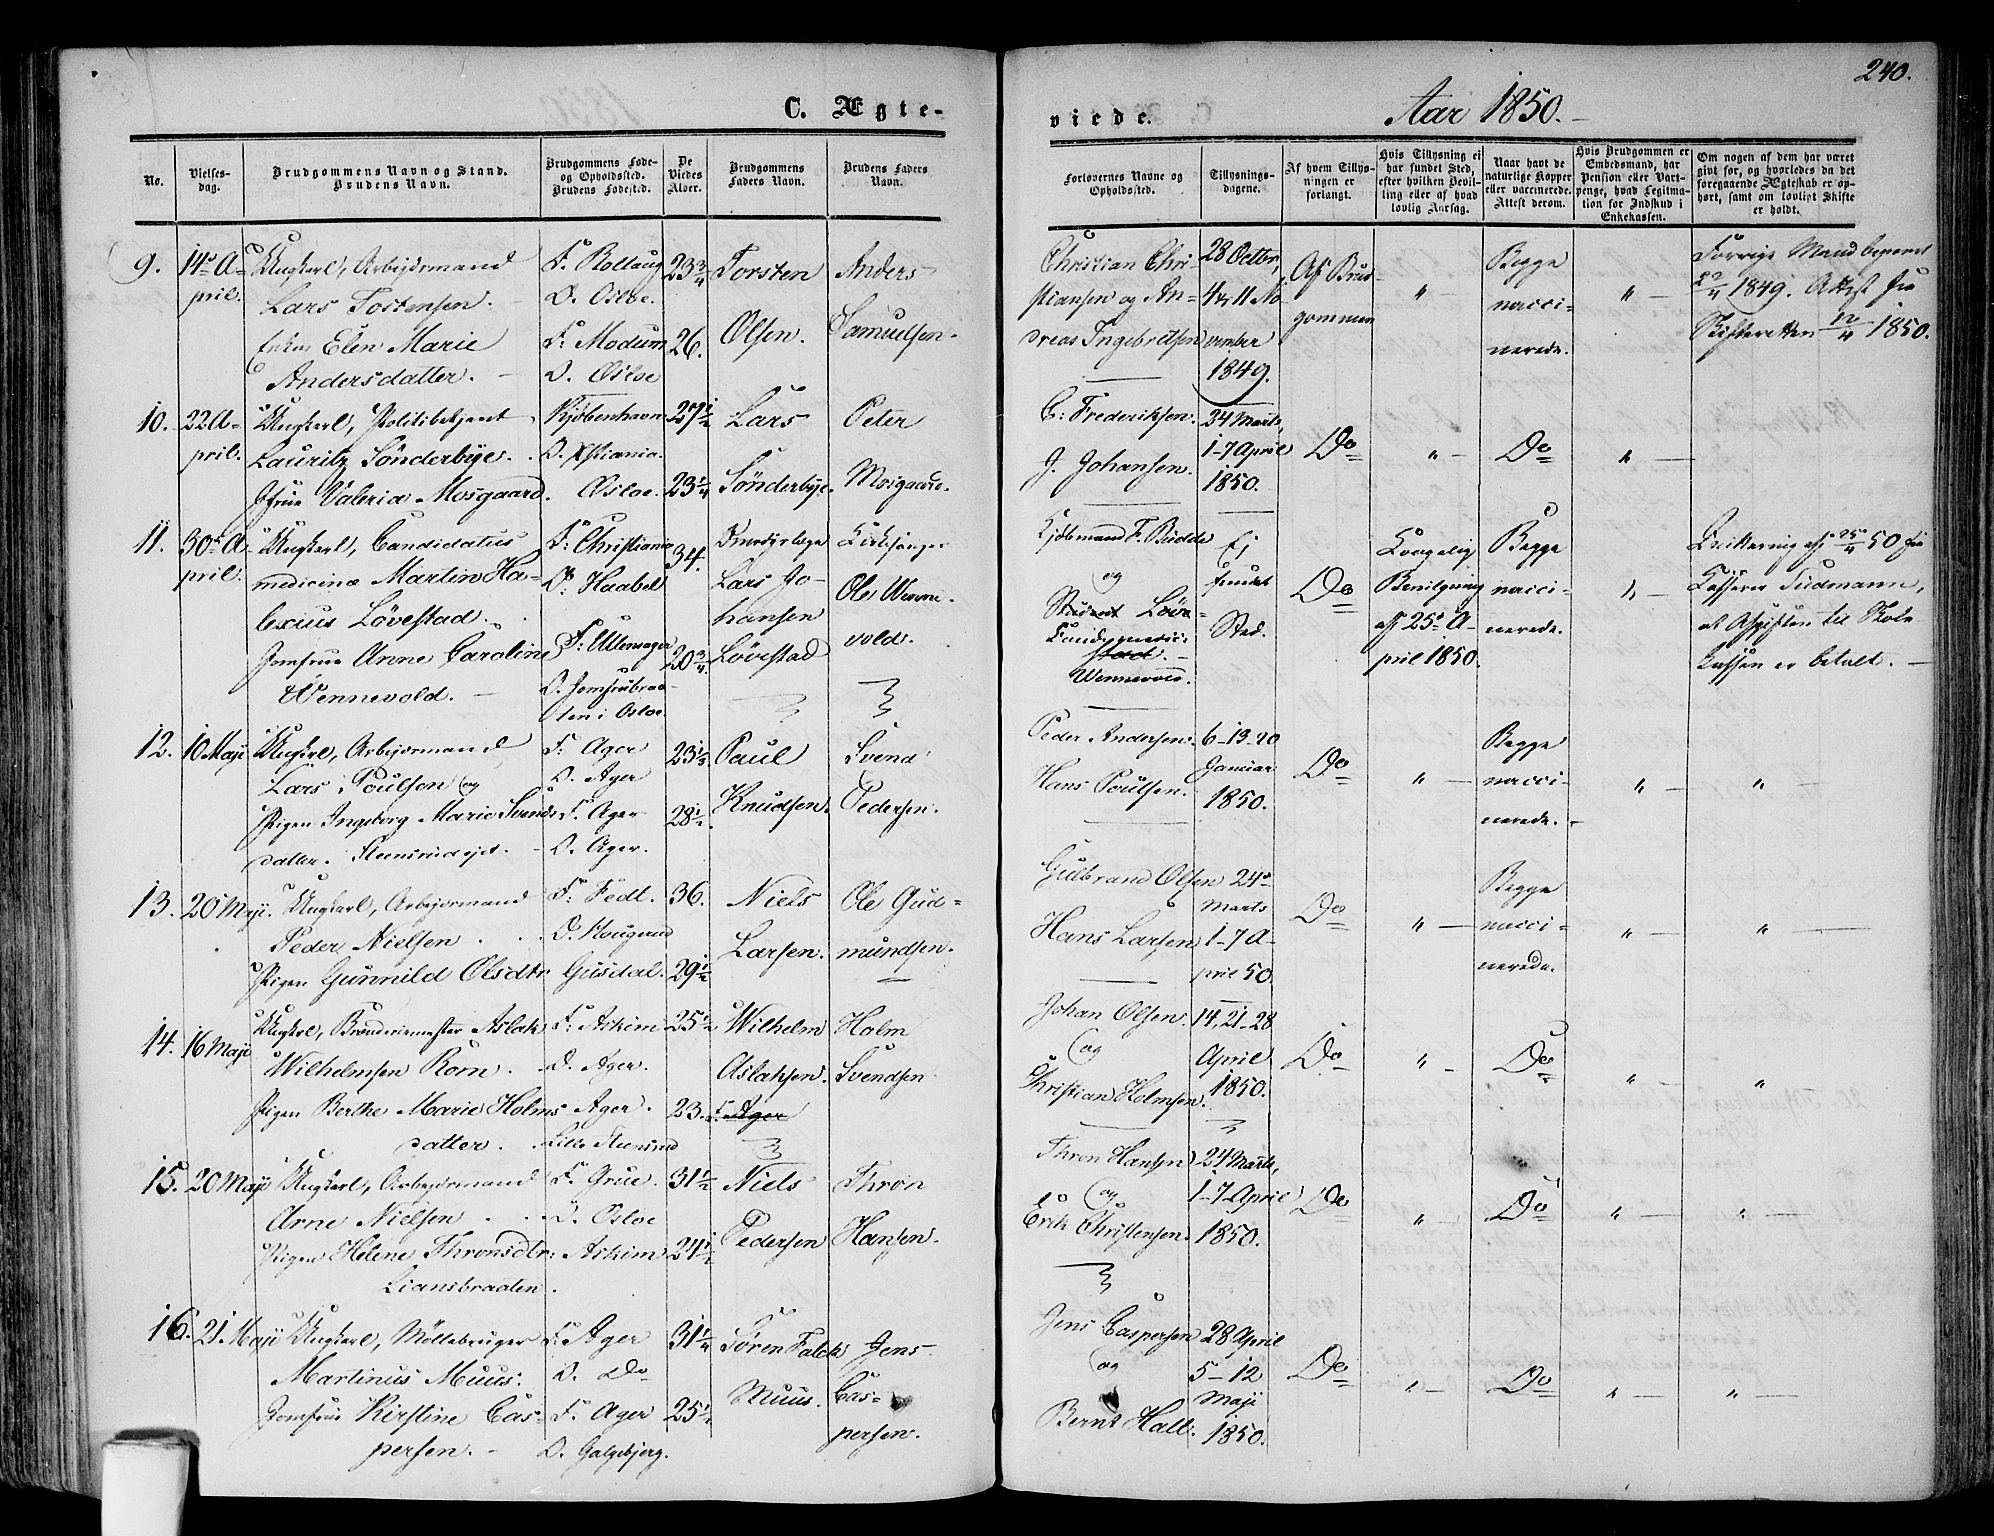 240.
C. Ægte-
viede.
Aar 1850.
No.
Vielses-
dag.
Brudgommens Navn og Stand.
Brudens Navn.
Brudgommens Føde-
og Opholdssted.
Brudens Fødested.
De
Viedes
Alder.
Brudgommens
Faders Navn.
Brudens Faders
Navn.
Forlovernes Navne og
Opholdssted.
Tillysnings-
dagene.
Af hvem Tillys-
ningen er
forlangt.
Hvis Tillysning ei
har fundet Sted,
efter hvilken Bevil-
ling eller af hvad
lovlig Aarsag.
Naar havt de
naturlige Kopper
eller vaccinerede.
Attest derom.
Hvis Brudgommen er
Embedsmand, har
Pension eller Vart-
penge, hvad Legitma-
tion for Indskud i
Enkekassen.
Om nogen af dem har været
givt før, og hvorledes da det
foregaaende Ægteskab er op-
hørt, samt om lovligt Skifte
er holdt.
9.
14de A-
pril.
Ungkarl, Arbejdsmand
Lars Tostensen.
Enken Elen Marie
Andersdatter.
F. Rollaug
O. Osloe.
F. Modum
O. Osloe
23 3/4
26.
Torsten
Olsen.
Anders
Samuelsen.
Christian Chri-
stiansen og An-
dreas Ingebretsen
28 Octbr,
4 & 11 No
vember
1849.
Af Brud
gommen
"
Begge
vacci-
nerede.
"
Forrige Mand begravet
22/4 1849. Attest fra
Skifteretten 12/4 1850.
10.
22 A-
pril.
Ungkarl, Politibetjent
Lauritz Sönderbye.
Jfrue Valeria Mosgaard.
Kjöbenhavn
O. Xstiania.
Osloe.
27 1/2
23 1/4
Lars
Sönderbye.
Peter
Mosgaard.
C: Frederiksen.
J. Johansen.
24 Marts,
1-7 April
1850.
Do
"
Do
"
11.
30te A-
pril.
Ungkarl, Candidatus
medicinæ Martin Ha-
lexius Lövestad.
Jomfrue Anne Caroline
Wennevold.
F: Christiania
O: Haabel
F: Ullensager
O. Jomfrubraa-
ten i Osloe.
34.
20 3/4
Lars Jo-
hansen
Lövestad
Kirkesanger
Ole Wenne-
vold.
Kjöbmand F. Budde
og
Student Löve-
stad.
Wennevold.
Ej
fundet
Sted.
Do
Kongelig
Bevilgning
af 25de A-
pril 1850.
Begge
vacci-
nerede.
"
Qvittering af 25/4 50 fra
Kasserer Tudmann,
at Afgiften til Skole
kassen er betalt.
12.
10 Maji
Ungkarl, Arbejdsmand
Lars Poulson og
Pigen Ingeborg Marie Svends
datter. Steensrudejet.
F: Ager
O. Ager
F. Ager
O. Ager.
23 1/2
28 1/2
Paul
Knudsen.
Svend
Pedersen.
Peder Andersen.
Hans Poulsen.
6-13-20
Januar
1850.
Do
"
Begge
vacci-
nerede.
"
"
13.
20 Maji.
Ungkarl, Arbejdsmand
Peder Nielsen
Pigen Gunnild Olsdtr
F. Fedt.
Gusdal.
36.
29 1/2
Niels
Larsen.
Ole Gud-
mundsen.
Gulbrand Olsen
Hans Larsen
24de
Marts
1-7 A-
pril 50.
Do
"
Begge
vacci-
nerede.
"
"
14.
16 Maji
Ungkarl, Brænderiemester Aslak
Wilhelmsen Rom.
Pigen Berthe Marie Holms
datter.
F: Askim
O. Ager.
Ager.
Lille Steensrud
25 1/2
23.
Wilhelm
Aslaksen.
F. Ager
Holm
Svendsen
Johan Olsen.
og
Christian Holmsen.
14, 21-28
April
1850.
Do
"
Do
"
"
15.
20 Maji
Ungkarl, Arbejdsmand
Arne Nielsen
Pigen Helene Thronsdtr:
Liansbraaten.
F. Grue.
O. Osloe
Askim
31 1/2
24 1/2
Niels
Pedersen
Thron
Hansen.
Thron Hansen
og
Erik Christensen.
24 Marts,
1-7-April
1850.
Do
"
Do
"
"
16.
21 Maji
Ungkarl, Möllebruger
Martinus Muus.
Jomfrue Kirstine Cas-
persen.
F: Ager
O. Do
F. Ager
O. Galgebjerg.
31 1/4
25 1/2
Sören Falck
Muus.
Jens
Cas-
persen.
Jens Caspersen
og
Bernt Hall.
28 April
5-12
Maji
1850.
Do
"
Do
"
"